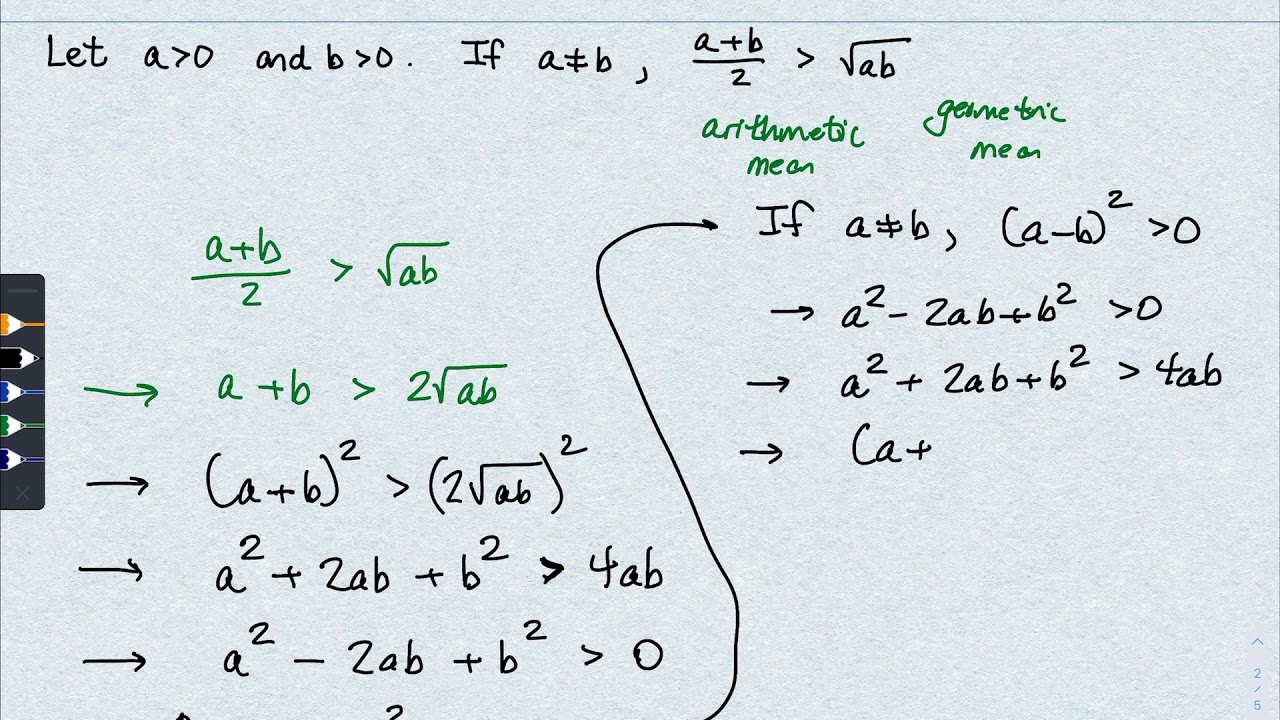 Let a>0 and b>0. If a≠b, (a+b)/2 > √ab
arithmetic mean
geometric mean
(a+b)/2 > √ab
→ a+b > 2√ab
→ (a+b)² > (2√ab)²
→ a² + 2ab + b² > 4ab
→ a² − 2ab + b² > 0
2
If a≠b, (a−b)² >0
→ a² − 2ab + b² >0
→ a² + 2ab + b² > 4ab
→ (a+
2
/
5